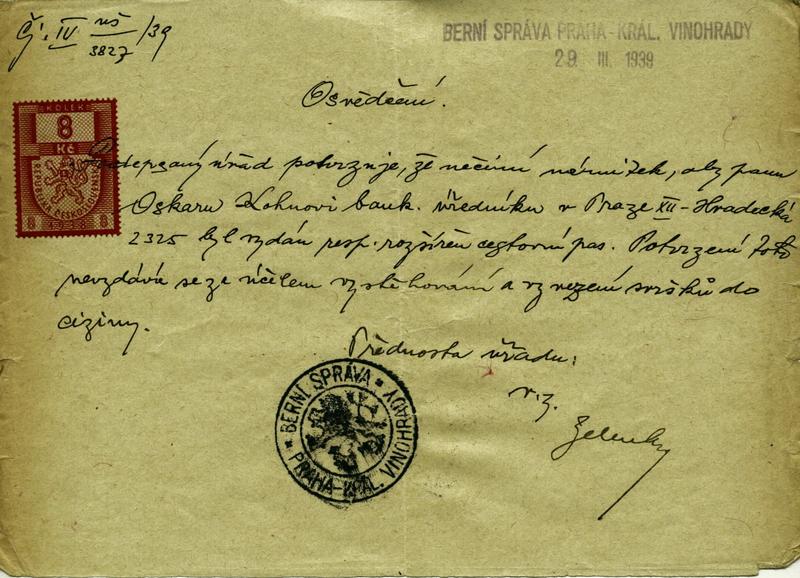 Čj. IV nš/3827 /39
BERNÍ SPRÁVA PRAHA-KRÁL. VINOHRADY
29 III. 1939
Osvědčení.
KOLEK
8
Kč
8 8
Podepsaný úřad potvrzuje, že nečiní námitek, aby panu
Oskaru Kohnovi bank. úředníku v Praze XII-Hradecká
2325 byl vydán resp. rozšířen cestovní pas. Potvrzení toto
nevydává se za účelem vystěhování a vyvezení svršků do
ciziny.
Přednosta úřadu:
v.z.
Zelenky
* BERNÍ SPRÁVA * PRAHA-KRÁL. VINOHRADY